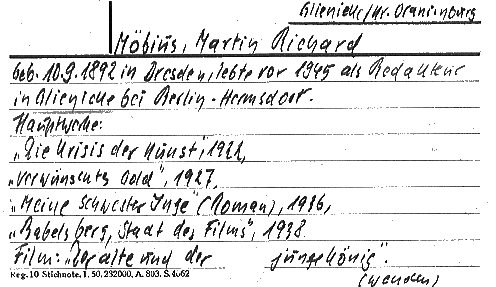 Glienicke/Kr. Oranienburg
Möbius, Martin Richard
geb. 10.9.1892 in Dresden, lebte vor 1945 als Redakteur
in Glienicke bei Berlin-Hermsdorf.
Hauptwerke:
"Die Krisis der Kunst", 1921,
"Verwünschtes Gold", 1927,
"Meine Schwester Inge" (Roman), 1936,
"Babelsberg, Stadt des Films", 1938
Film: "Der alte und der junge König".
Reg. 10 Stichnote. 1. 50. 232000. A. 803. S. 4062
(wenden)